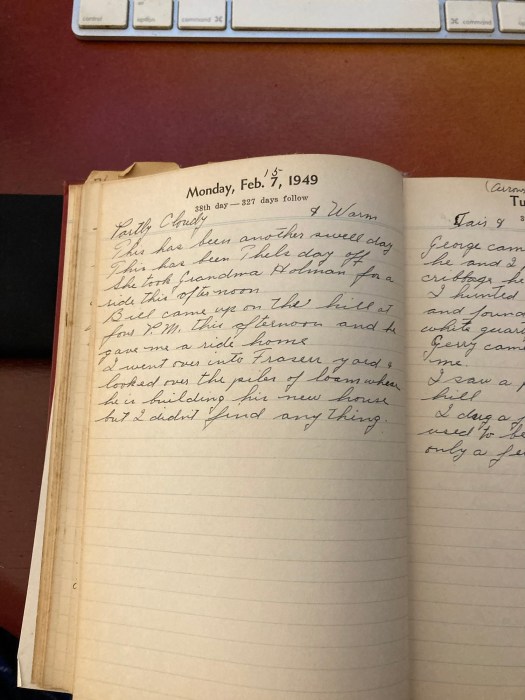 control
option
command ⌘
⌘ command
Monday, Feb. 7, 1949
15
38th day—327 days follow
Partly Cloudy & Warm
This has been another swell day
This has been Thels day off
she took Grandma Holman for a
ride this afternoon
Bill came up on the hill at
four P.M. this afternoon and he
gave me a ride home
I went over into Frazer yard &
looked over the piles of loam where
he is building his new house
but I didn't find any thing.
Tu
Fair &
George cam
he and I
cribbage he
I hunted
and found
white quar
Gerry cam
me.
I saw a
hill
I dug a
used to be
only a fe